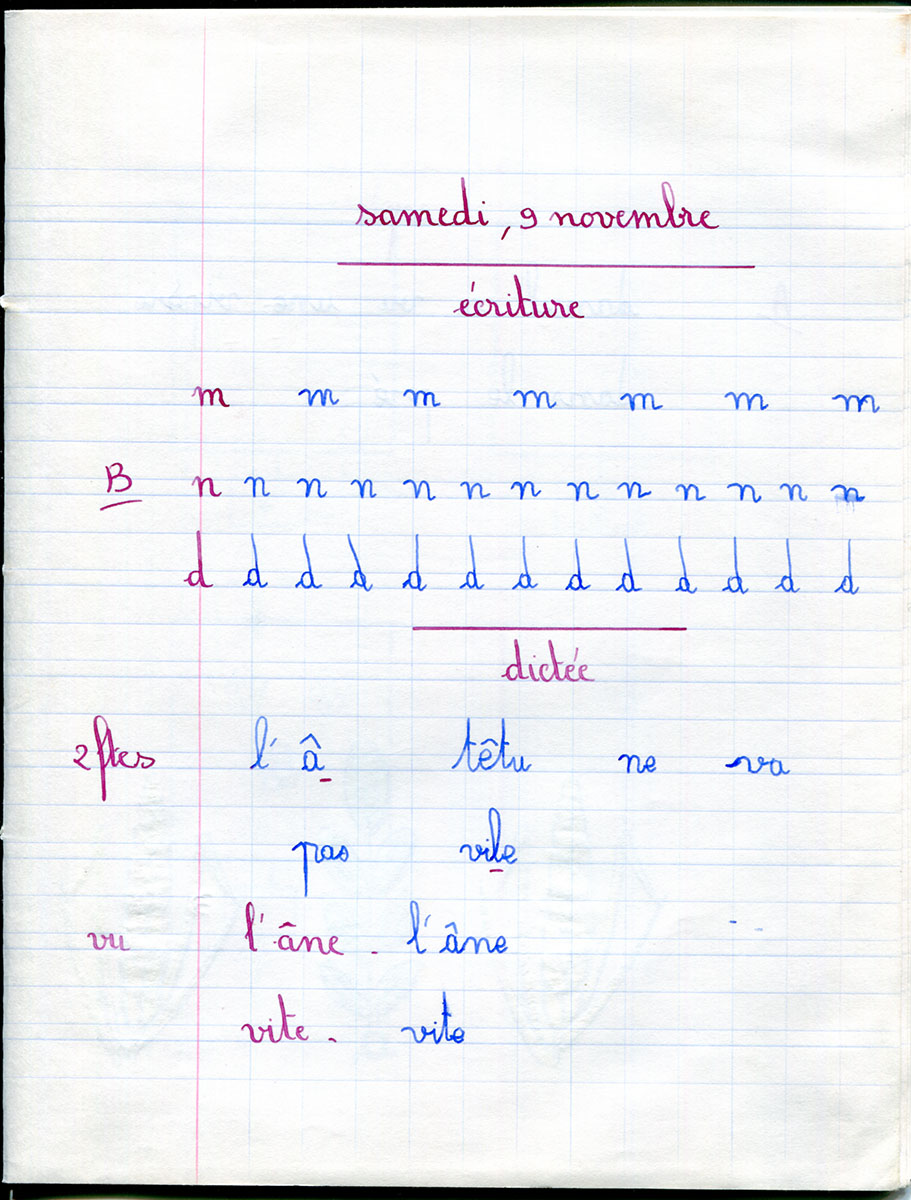 samedi, 9 novembre
écriture
m m m m m m m
B n n n n n n n n n n n n n
d d d d d d d d d d d d d
dictée
2 ftes l'â têtu ne va
pas vile
vu l'âne. l'âne
vite. vite